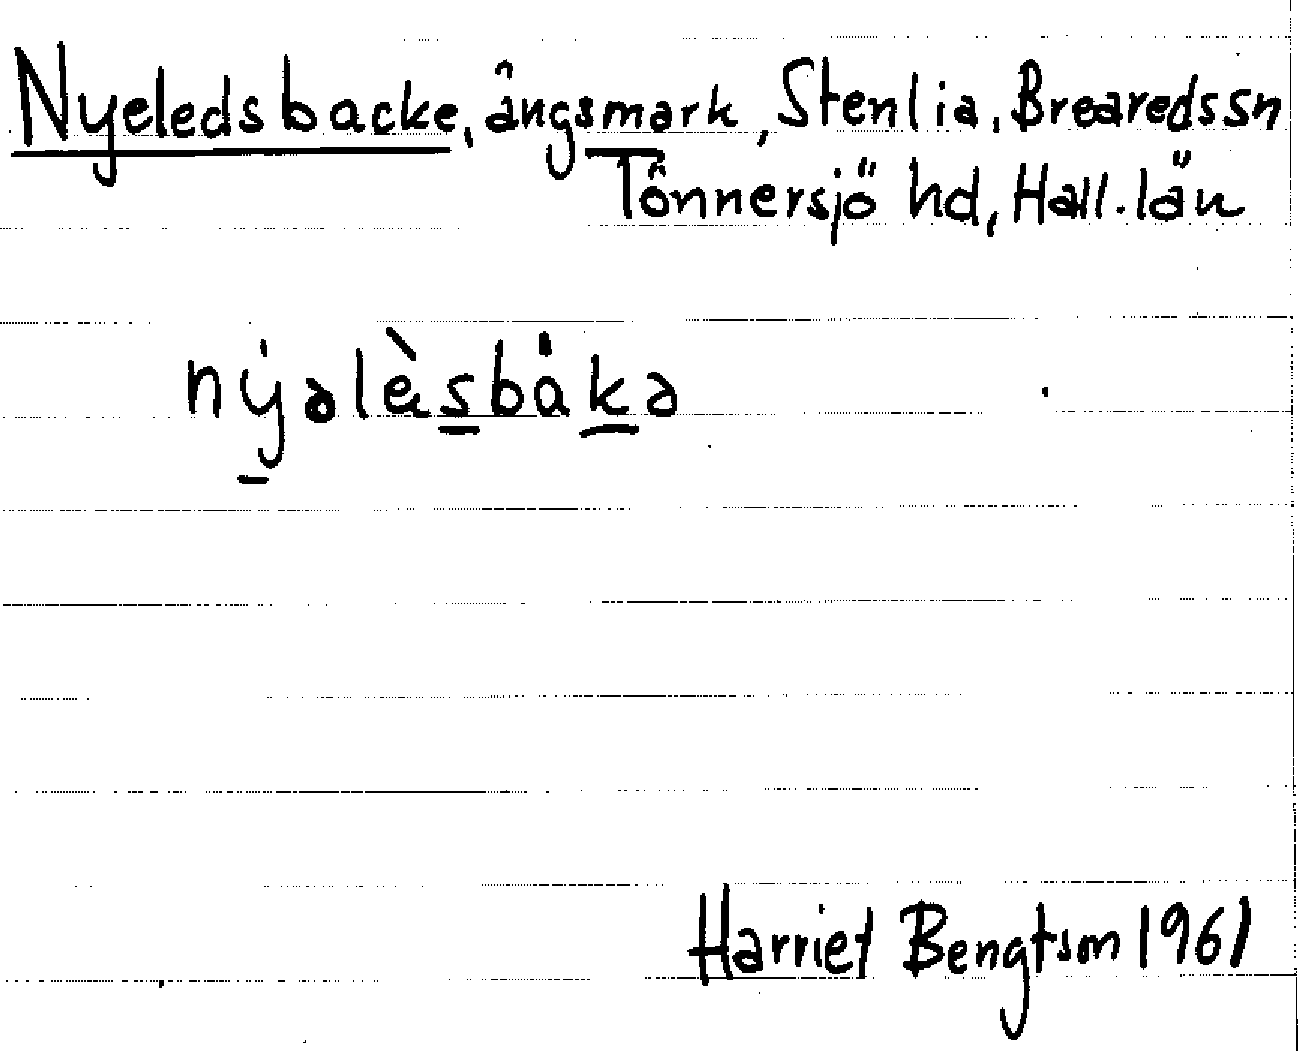 Nyeledsbacke, ängsmark, Stenlia, Breareds sn
Tönnersjö hd, Hall. län
nýəlèsbákə
Harriet Bengtson 1961